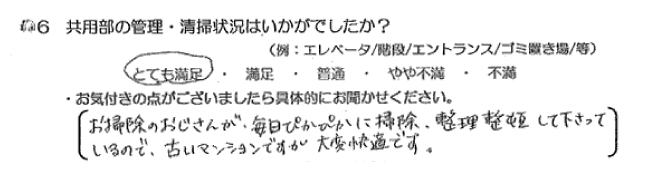 問6 共用部の管理・清掃状況はいかがでしたか?
(例:エレベータ/階段/エントランス/ゴミ置き場/等)
とても満足 ・ 満足 ・ 普通 ・ やや不満 ・ 不満
・お気付きの点がございましたら具体的にお聞かせください。
お掃除のおじさんが、毎日ぴかぴかに掃除、整理整頓して下さって
いるので、古いマンションですが大変快適です。